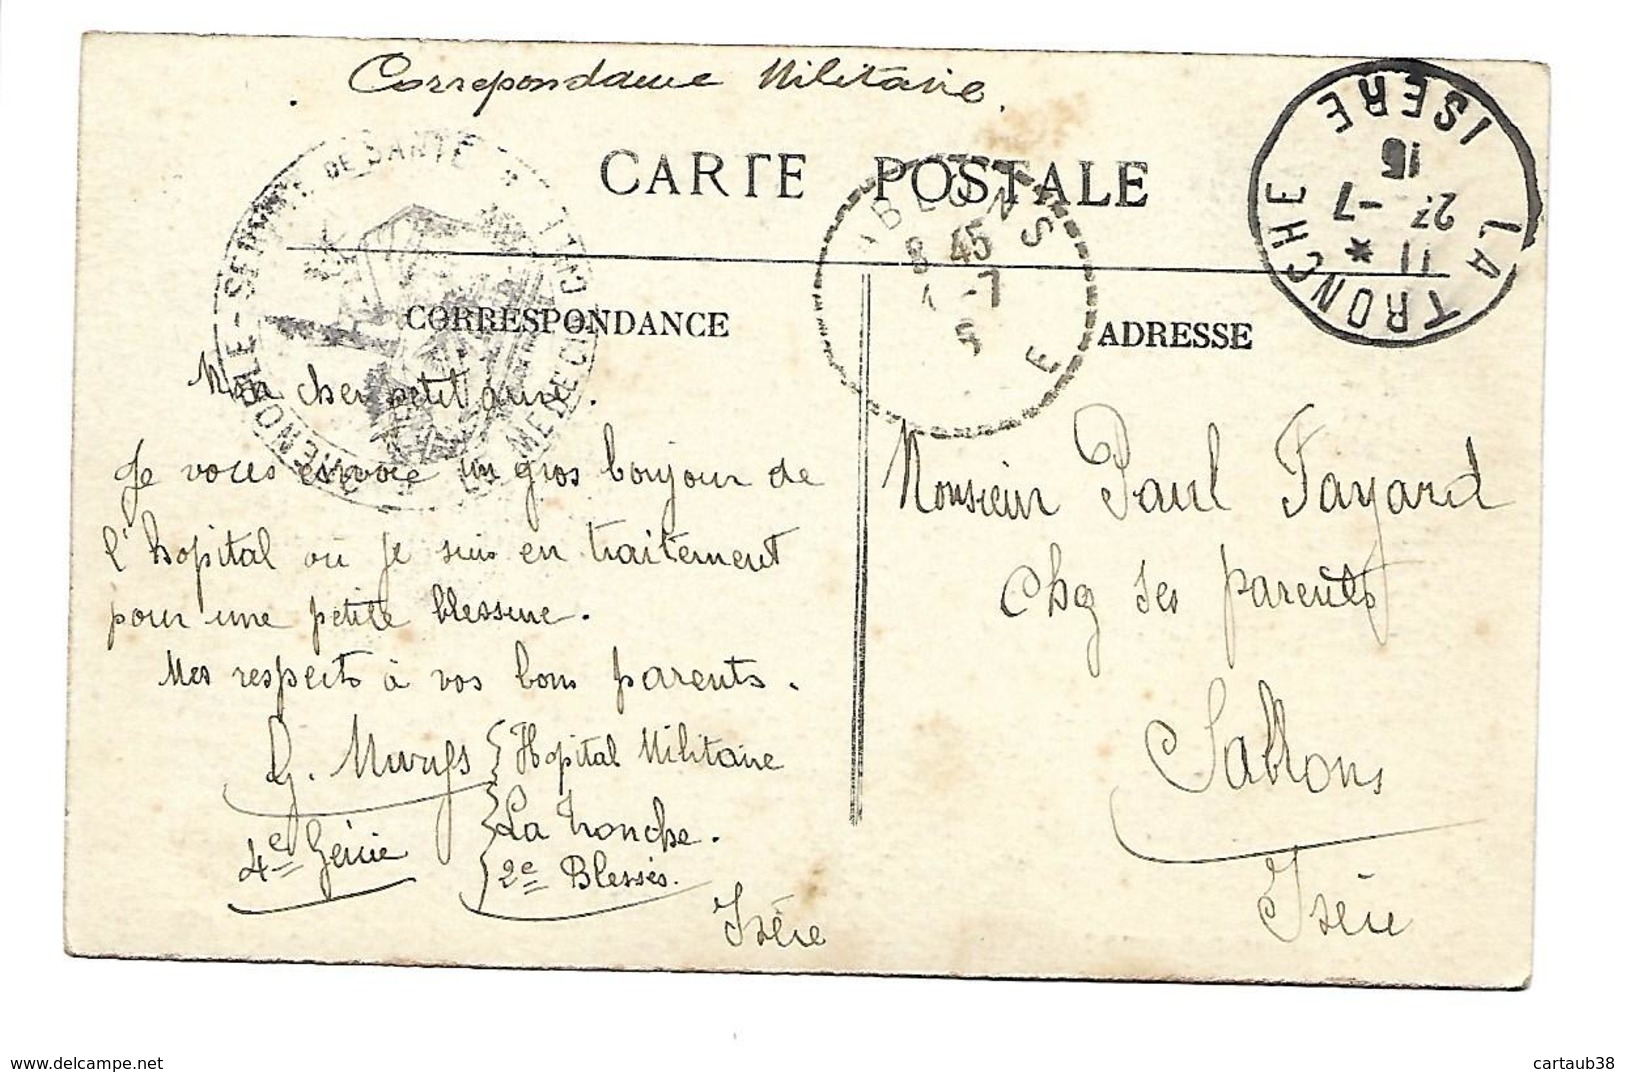 Correpondance Militaire.
CARTE POSTALE
GRENOBLE - SERVICE DE SANTÉ
LA TRONCHE
11 *
27 -7
15
ISERE
SABLONS
8 45
-7
5
E
CORRESPONDANCE
ADRESSE
Mon cher petit ami.
Je vous envoie un gros bonjour de
l'hopital où je suis en traitement
pour une petite blessure.
Mes respects à vos bons parents.
G.
4e Génie
Hopital Militaire
La Tronche.
2e Blessés.
Isère
Monsieur Paul Fayard
Chez ses parents
Sablons
Isère
www.delcampe.net
cartaub38